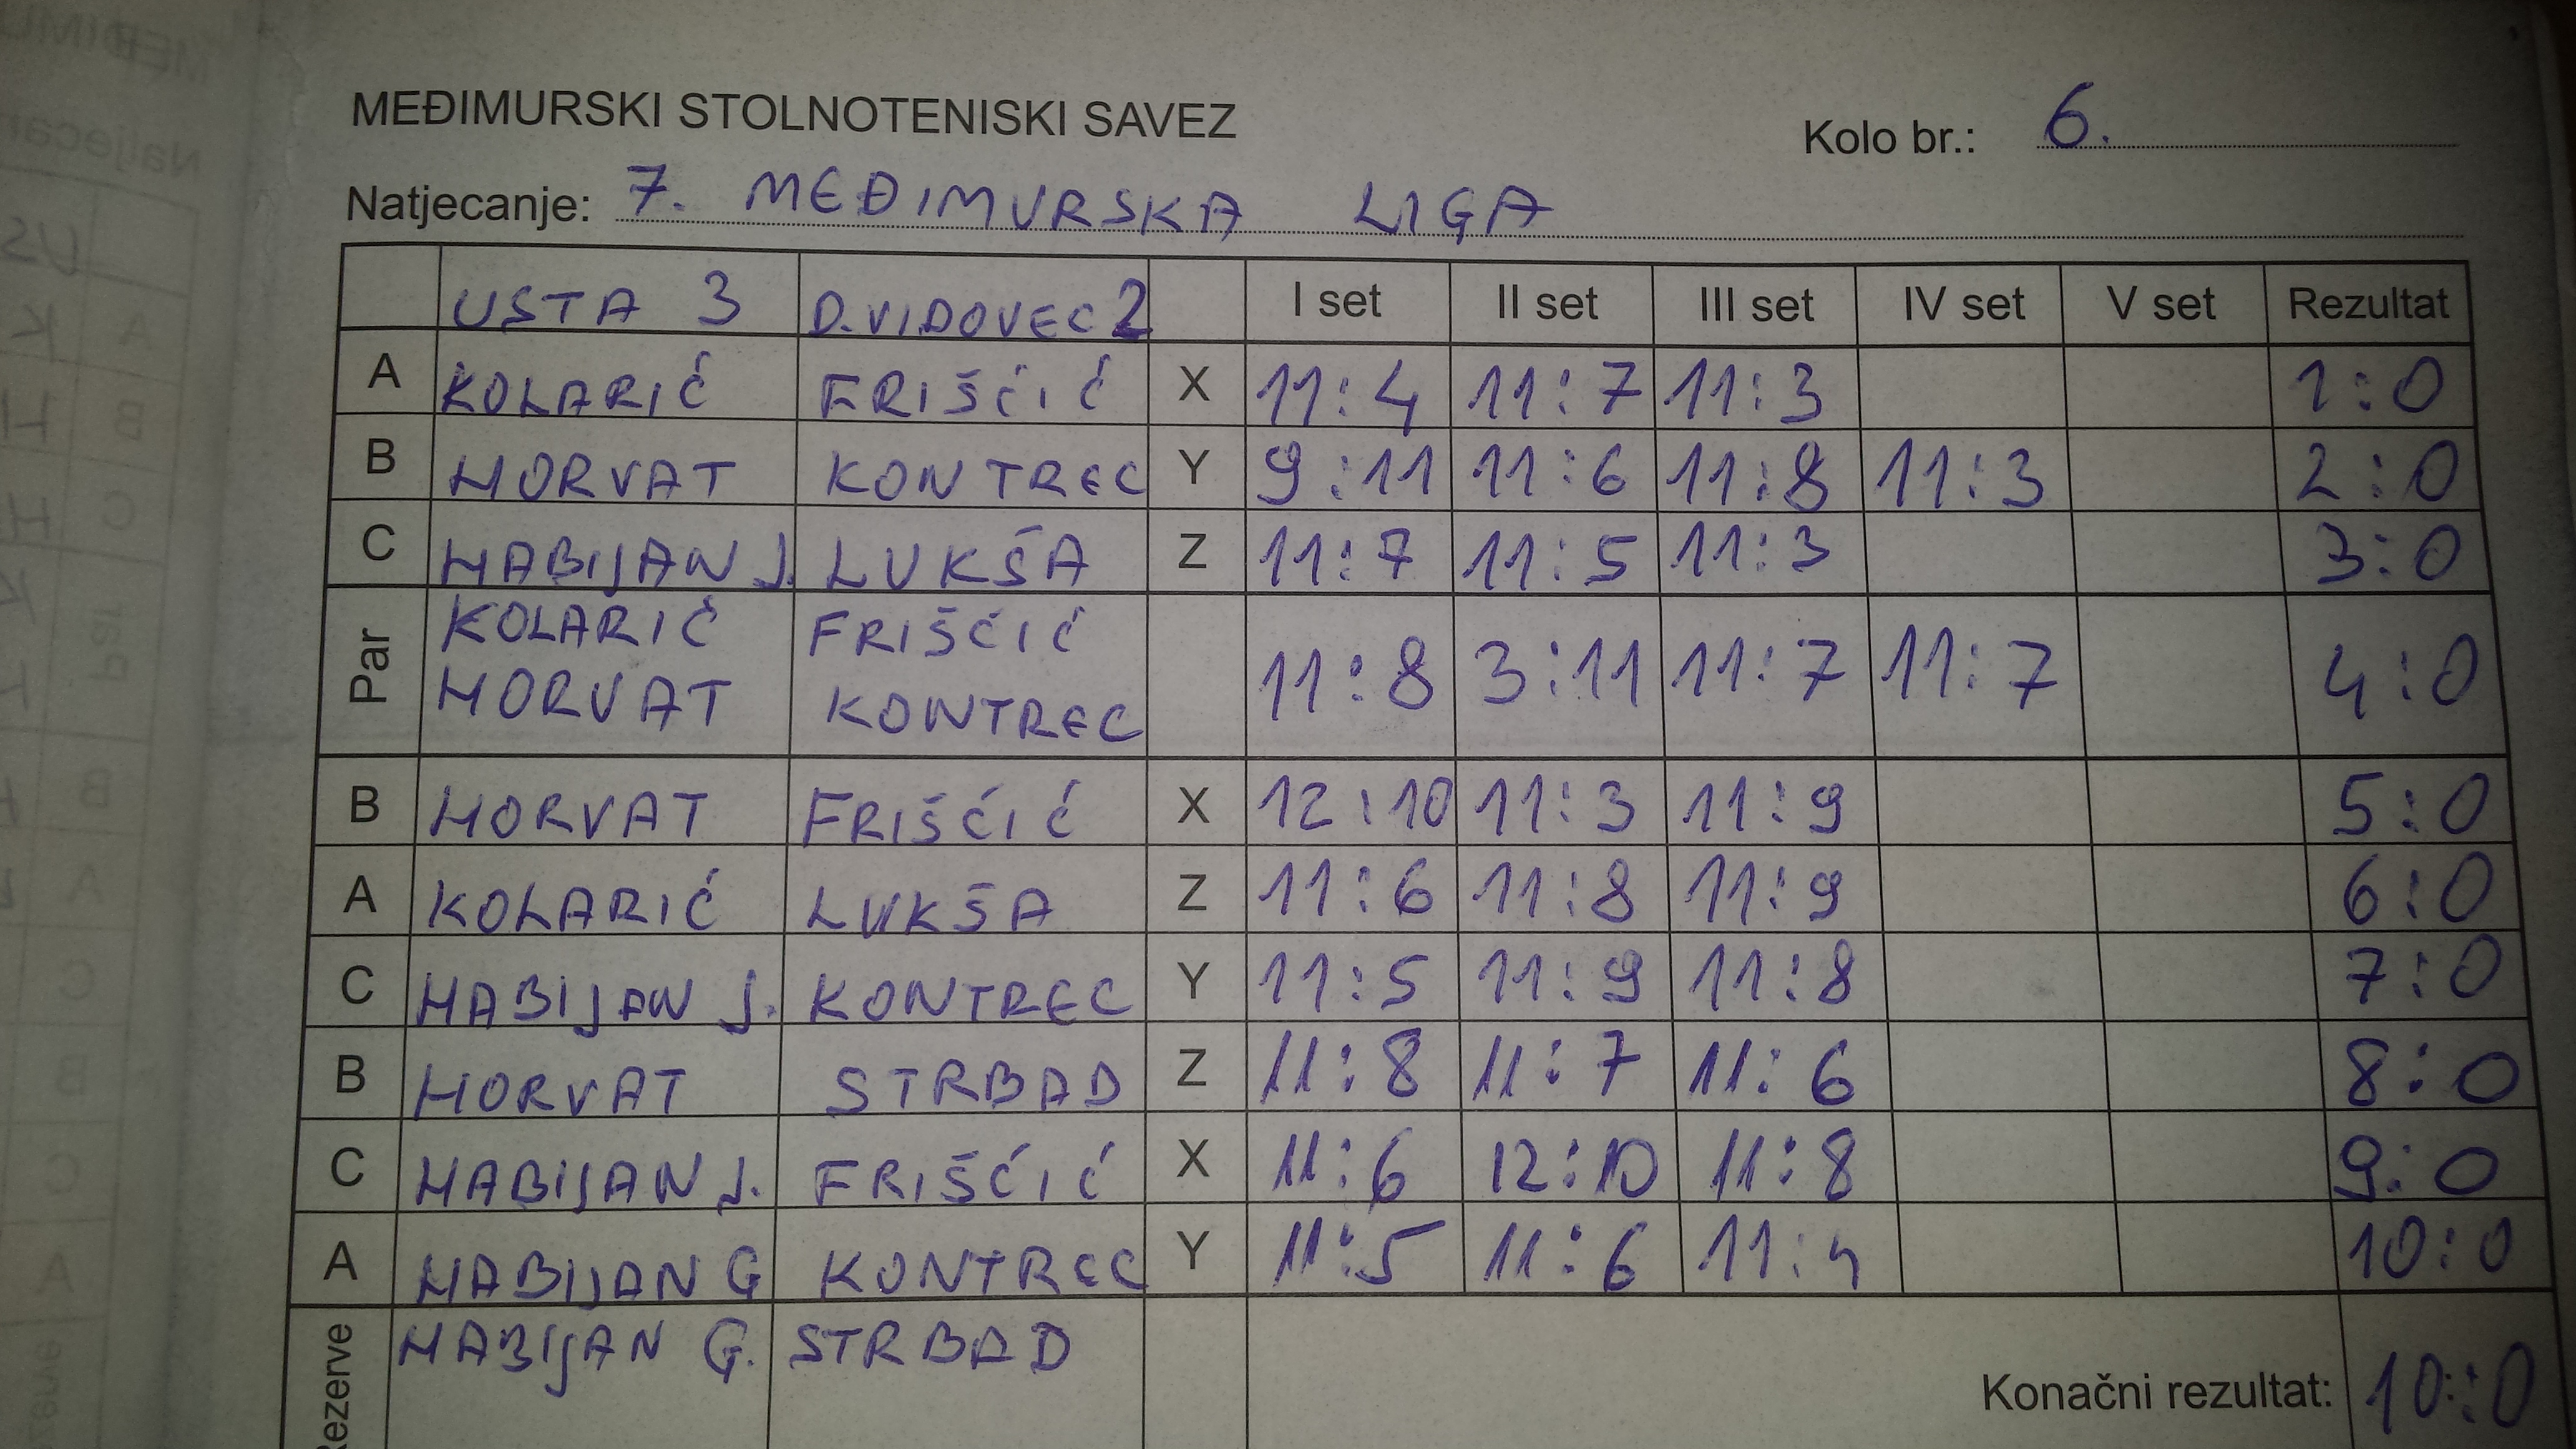 MEĐIMURSKI STOLNOTENISKI SAVEZ
Kolo br.: 6.
Natjecanje: 7. MEĐIMURSKA LIGA
USTA 3 D.VIDOVEC 2 I set II set III set IV set V set Rezultat
A KOLARIĆ FRIŠĆIĆ X 11:4 11:7 11:3 1:0
B HORVAT KONTREC Y 9:11 11:6 11:8 11:3 2:0
C HABIJAN J. LUKŠA Z 11:7 11:5 11:3 3:0
Par KOLARIĆ FRIŠĆIĆ
HORVAT KONTREC 11:8 3:11 11:7 11:7 4:0
B HORVAT FRIŠĆIĆ X 12:10 11:3 11:9 5:0
A KOLARIĆ LUKŠA Z 11:6 11:8 11:9 6:0
C HABIJAN J. KONTREC Y 11:5 11:9 11:8 7:0
B HORVAT STRBAD Z 11:8 11:7 11:6 8:0
C HABIJAN J. FRIŠĆIĆ X 11:6 12:10 11:8 9:0
A HABIJAN G KONTREC Y 11:5 11:6 11:4 10:0
Rezerve HABIJAN G. STRBAD
Konačni rezultat: 10:0